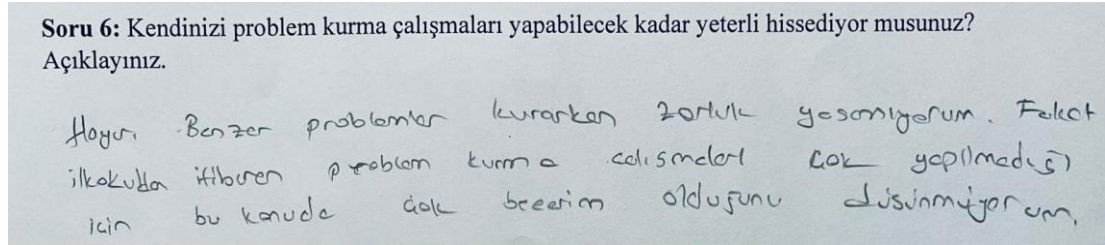 Soru 6: Kendinizi problem kurma çalışmaları yapabilecek kadar yeterli hissediyor musunuz?
Açıklayınız.
Hayır. Benzer problemler kurarken zorluk yaşamıyorum. Fakat
ilkokuldan itibaren problem kurma çalışmaları çok yapılmadığı
için bu konuda çok becerim olduğunu düşünmüyorum.